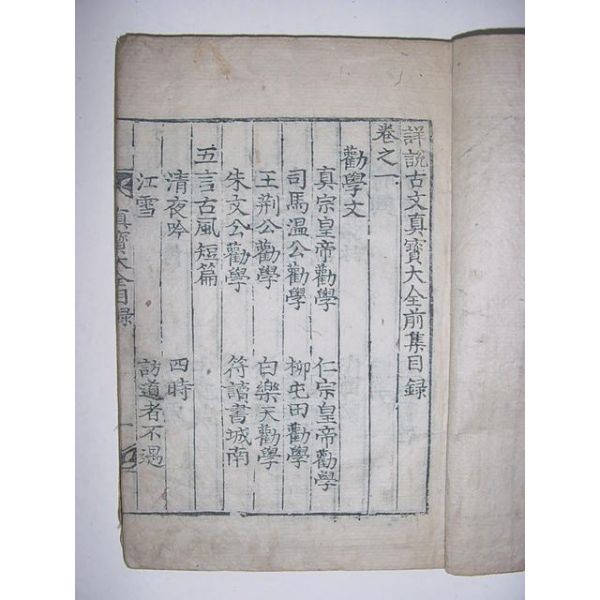 詳說古文真寶大全前集目録
卷之一
勸學文
真宗皇帝勸學 仁宗皇帝勸學
司馬溫公勸學 柳屯田勸學
王荆公勸學 白樂天勸學
朱文公勸學 符讀書城南
五言古風短篇
清夜吟 四時
江雪 訪道者不遇
真寶大全目録 一